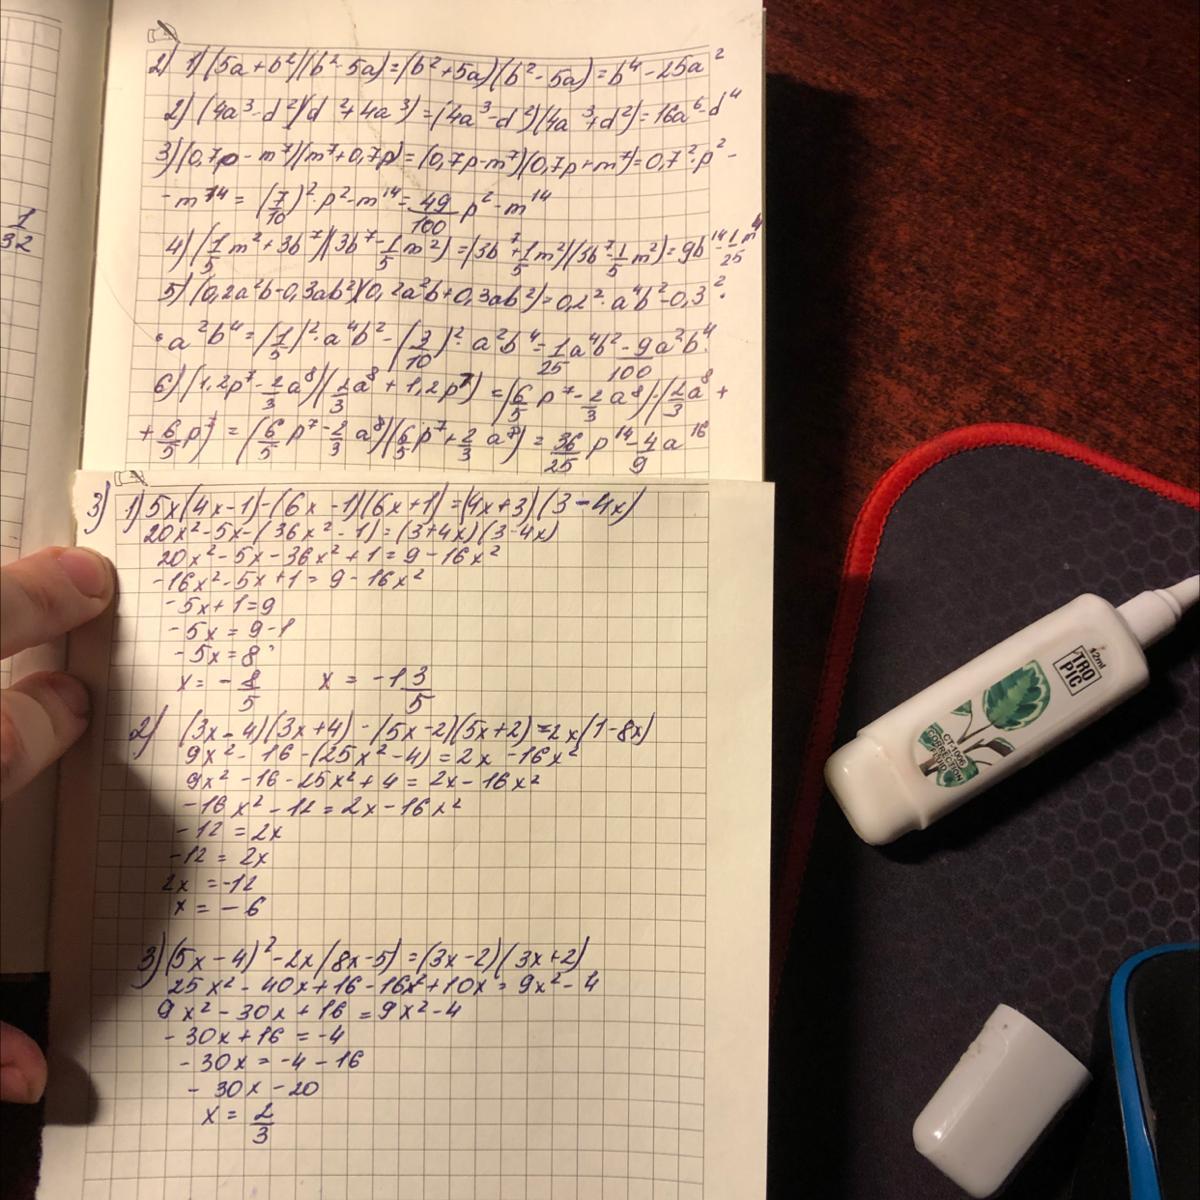 1
32
2) 1) (5a+b²)(b²-5a)=(b²+5a)(b²-5a)=b⁴-25a²
2) (4a³-d²)(d²+4a³)=(4a³-d²)(4a³+d²)=16a⁶-d⁴
3) (0,7p-m⁷)(m⁷+0,7p)=(0,7p-m⁷)(0,7p+m⁷)=0,7²·p²-
-m¹⁴=(7/10)²·p²-m¹⁴=49/100 p²-m¹⁴
4) (1/5 m²+3b⁷)(3b⁷-1/5 m²)=(3b⁷+1/5 m²)(3b⁷-1/5 m²)=9b¹⁴-1/25 m⁴
5) (0,2a²b-0,3ab²)(0,2a²b+0,3ab²)=0,2²·a⁴b²-0,3²·
·a²b⁴=(1/5)²·a⁴b²-(3/10)²·a²b⁴=1/25 a⁴b²-9/100 a²b⁴
6) (1,2p⁷-2/3 a⁸)(2/3 a⁸+1,2p⁷)=(6/5 p⁷-2/3 a⁸)·(2/3 a⁸+
+6/5 p⁷)=(6/5 p⁷-2/3 a⁸)(6/5 p⁷+2/3 a⁸)=36/25 p¹⁴-4/9 a¹⁶
3) 1) 5x(4x-1)-(6x-1)(6x+1)=(4x+3)(3-4x)
20x²-5x-(36x²-1)=(3+4x)(3-4x)
20x²-5x-36x²+1=9-16x²
-16x²-5x+1=9-16x²
-5x+1=9
-5x=9-1
-5x=8
x=-8/5 x=-1 3/5
2) (3x-4)(3x+4)-(5x-2)(5x+2)=2x(1-8x)
9x²-16-(25x²-4)=2x-16x²
9x²-16-25x²+4=2x-16x²
-16x²-12=2x-16x²
-12=2x
-12=2x
2x=-12
x=-6
3) (5x-4)²-2x(8x-5)=(3x-2)(3x+2)
25x²-40x+16-16x²+10x=9x²-4
9x²-30x+16=9x²-4
-30x+16=-4
-30x=-4-16
-30x-20
x=2/3
12ml
TRO
PIC
CT-1005
CORRECTION
FLUID